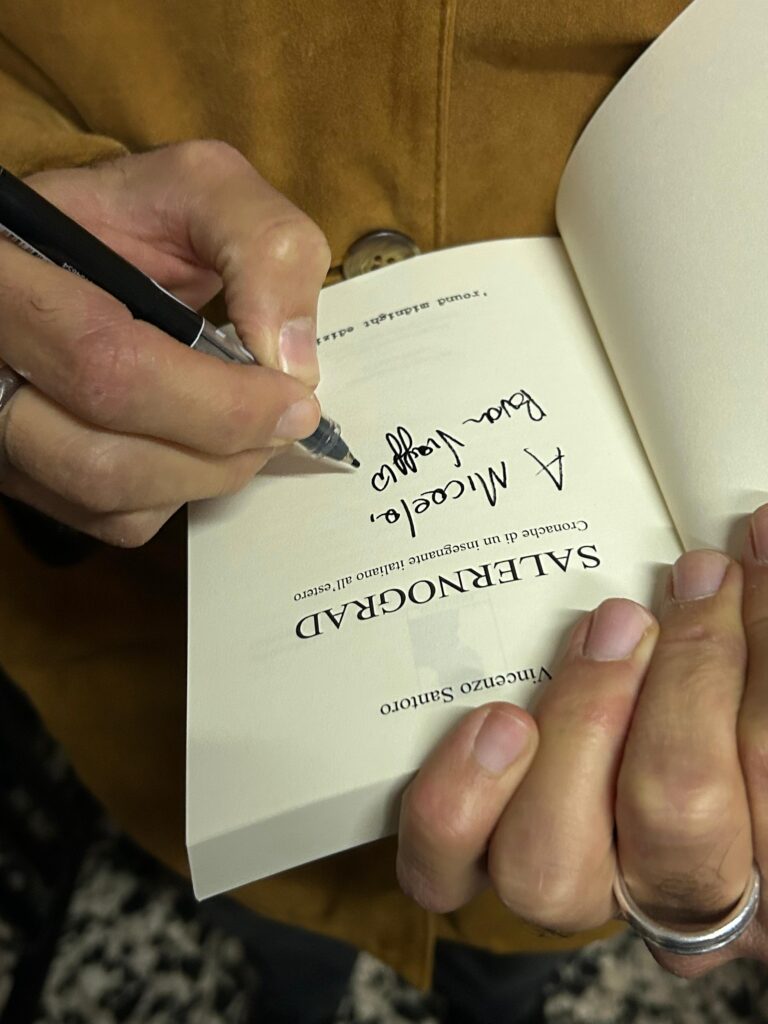 Vincenzo Santoro
SALERNOGRAD
Cronache di un insegnante italiano all'estero
A Micaela,
Buon Viaggio
'round midnight edizi